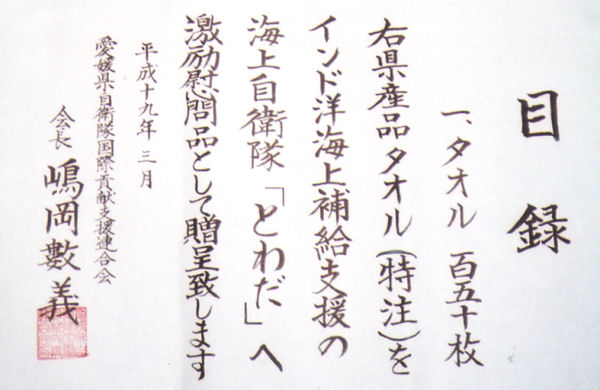 目録
一、タオル 百五十枚
右県産品タオル(特注)を
インド洋海上補給支援の
海上自衛隊「とわだ」へ
激励慰問品として贈呈致します
平成十九年 三月
愛媛県自衛隊国際貢献支援連合会
会長 嶋岡數義